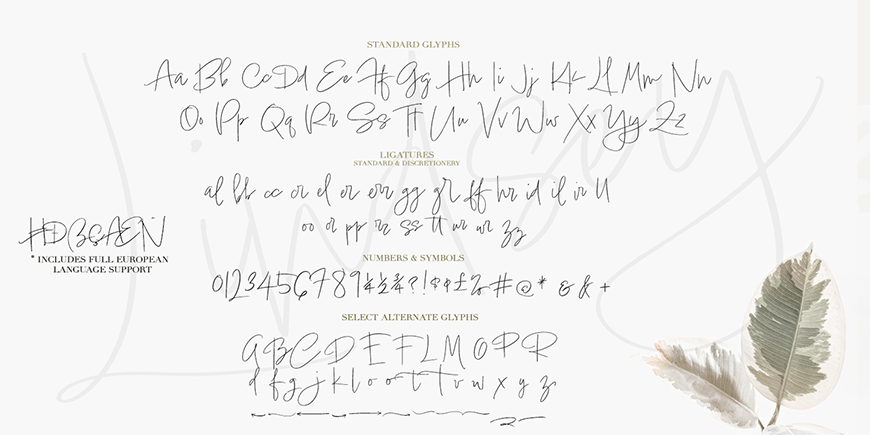 STANDARD GLYPHS
Aa Bb Cc Dd Ee Ff Gg Hh Ii Jj Kk Ll Mm Nn
Oo Pp Qq Rr Ss Tt Uu Vv Ww Xx Yy Zz
LIGATURES
STANDARD & DISCRETIONERY
al bb cc cr el er err gg gr ff hr id il ir ll
oo or pp rr ss tt ur wr zz
* INCLUDES FULL EUROPEAN
LANGUAGE SUPPORT
NUMBERS & SYMBOLS
0123456789 ¼ ½ ¾ ? ! # @ * & & +
SELECT ALTERNATE GLYPHS
A B C D E F L M O P R
d f g j k l o o t t v w x y z
Lindsay